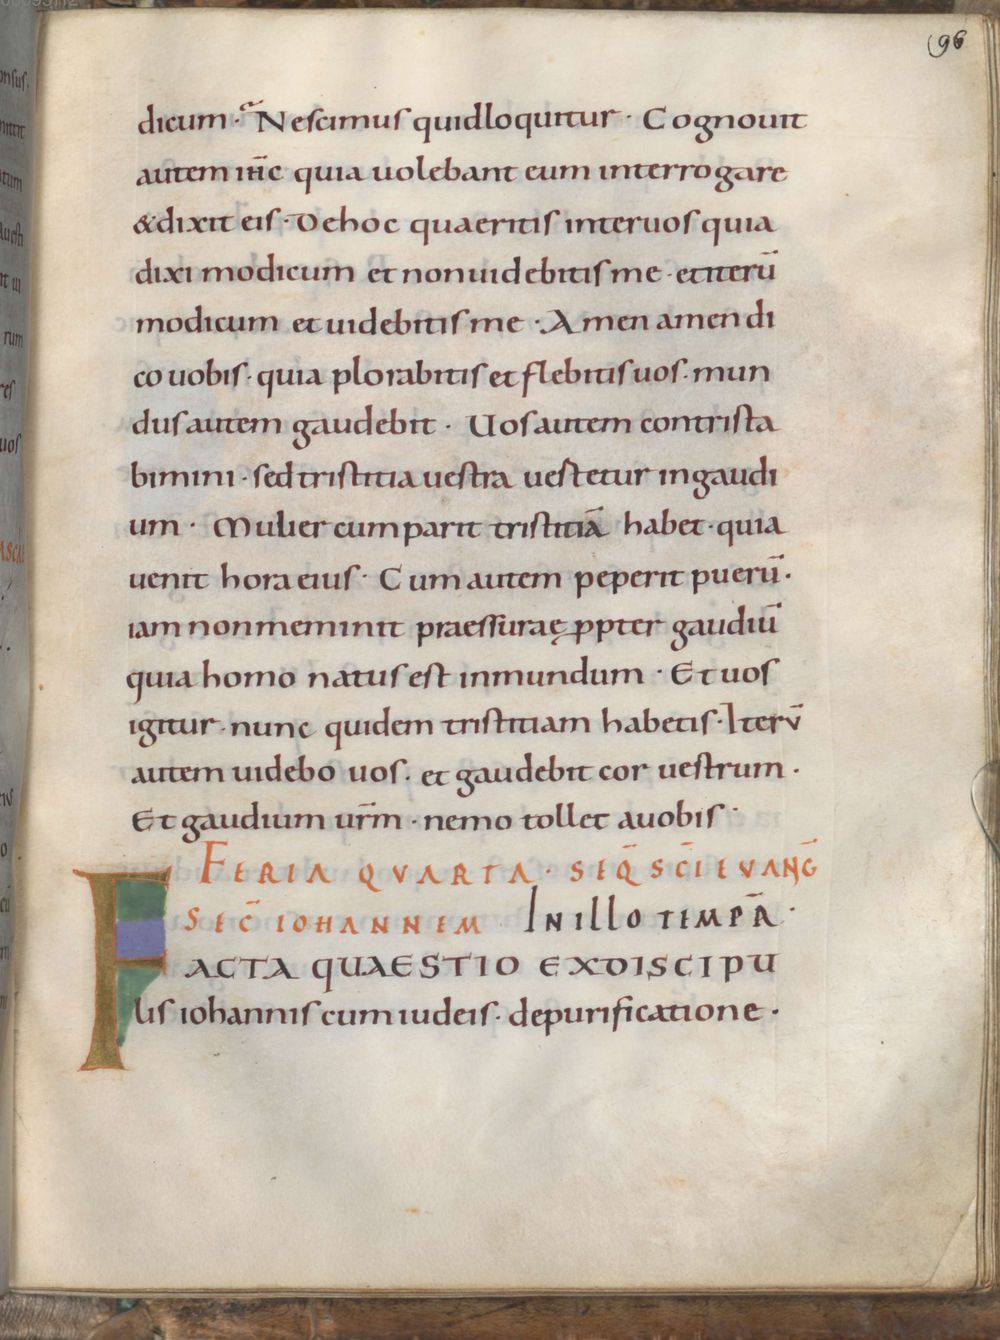 96
dicum · Nescimus quid loquitur · Cognouit
autem ih̅c quia uolebant eum interrogare
& dixit eis · De hoc quaeritis inter uos quia
dixi modicum et non uidebitis me · et iterū
modicum et uidebitis me · Amen amen di
co uobis · quia plorabitis et flebitis uos · mun
dus autem gaudebit · Uos autem contrista
bimini · sed tristitia uestra uestetur in gaudi
um · Mulier cum parit tristitiā habet · quia
uenit hora eius · Cum autem peperit puerū ·
iam non meminit praessurae ꝓpter gaudiū
quia homo natus est in mundum · Et uos
igitur · nunc quidem tristitiam habetis · Iterv̄
autem uidebo uos · et gaudebit cor uestrum ·
Et gaudium ur̅m · nemo tollet a uobis ·
FERIA QVARTA · SEQ̅ SC̅I EVANG̅
SEC̅ IOHANNEM IN ILLO TEMPR̅ ·
FACTA QUAESTIO EX DISCIPU
lis iohannis cum iudeis · de purificatione ·